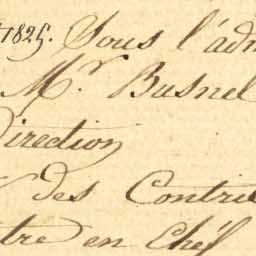 1825. Sous l'adm
Mr. Busnel
Direction
des Contrib
tre en Chéf